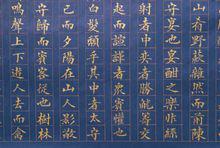 山肴野蔌雜然而前陳
守宴也宴酣之樂非絲
射者中奕者勝觥籌交
起而諠譁者衆賓懽也
白髮頹乎其中者太守
已而夕陽在山人影散
守歸而賓客從也樹林
鳴聲上下遊人去而禽